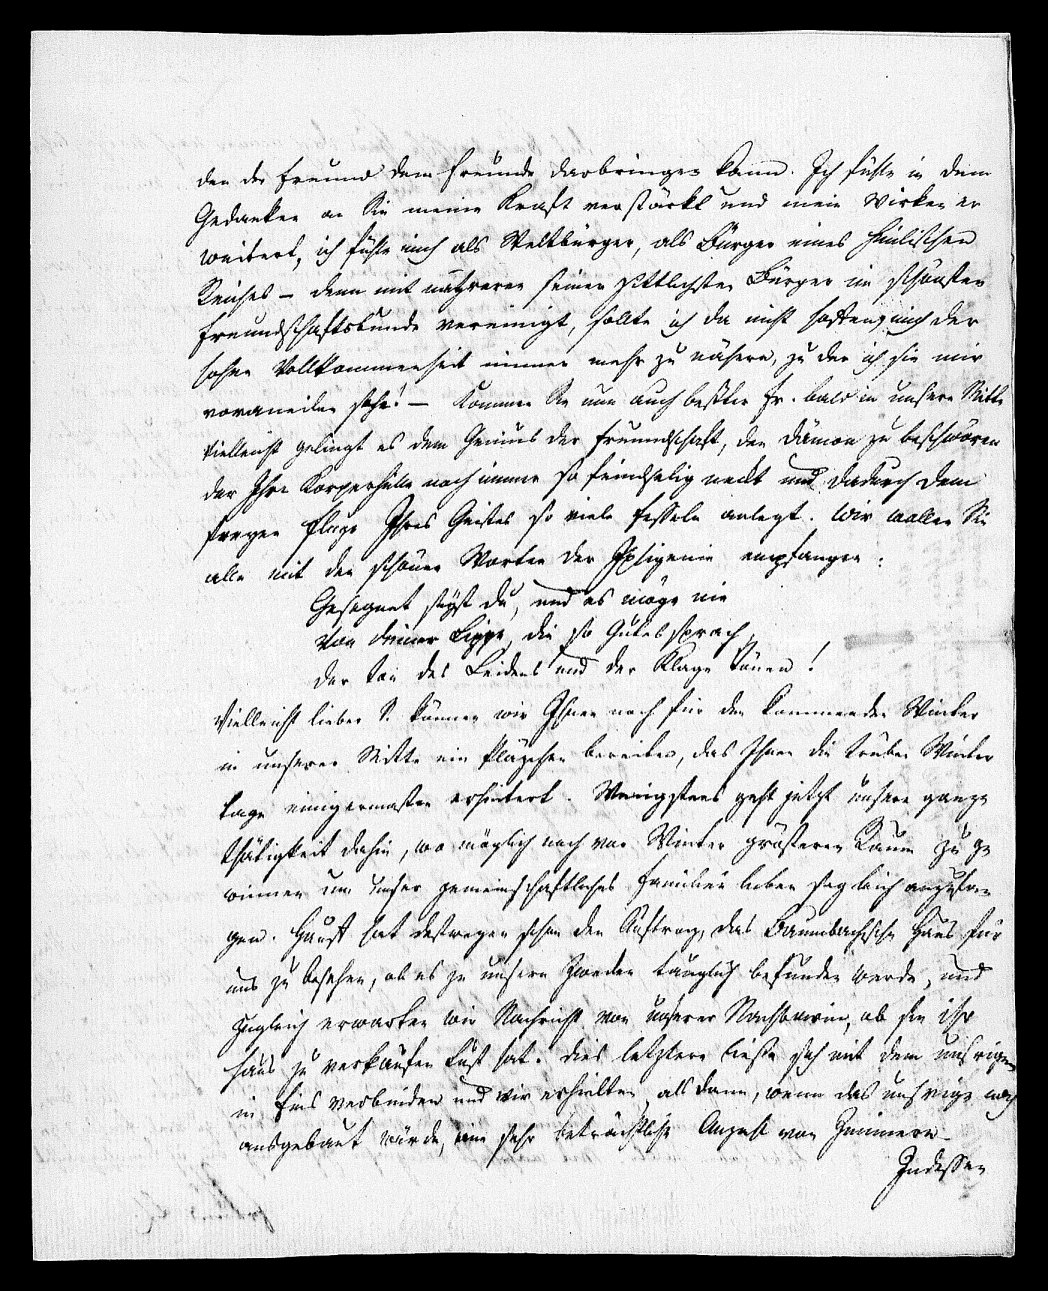 den der Freund dem Freunde darbringen kann. Ich fühle in dem
Gedanken an Sie meine Kraft verstärkt und mein Wirken er
weitert, ich fühle mich als Weltbürger, als Bürger eines himlischen
Reiches – denn mit mehreren seiner sittlichsten Bürger im schönsten
Freundschaftsbunde vereinigt, sollte ich da nicht hoffen, mich der
hohen Vollkommenheit immer mehr zu nähern, zu der ich sie mir
voraneilen sehe! – Kommen Sie nun auch bester Fr. bald in unsere Mitte
Vielleicht gelingt es dem Genius der Freundschaft, den Dämon zu beschwören
der Ihre Körperhülle noch immer so feindselig neckt und dadurch dem
freyen Fluge Ihres Geistes so viele Fesseln anlegt. Wir wollen Sie
alle mit den schönen Worten der Iphigenie empfangen:
Gesegnet seyst du, und es möge nie
Von deiner Lippe, die so Gutes sprach,
Der Ton des Leidens und der Klage tönen!
Vielleicht lieber F. können wir Ihnen noch für den kommenden Winter
in unserer Mitte ein Pläzchen bereiten, das Ihnen die trüben Winter
tage einigermasten erheitert. Wenigstens geht jetzt unsere ganze
thätigkeit dahin, wo möglich noch vor Winter grösteren Raum zu ge
winnen um unser gemeinschaftliches Familien leben sogleich anzufan
gen. hat deswegen schon den Auftrag, das Baumbachsche Haus für
uns zu besehen, ob es zu unsern Zwecken tauglich befunden werde, und
zugleich erwarten wir Nachricht von unserer Nachbarin, ob sie ihr
Haus zu verkaufen Lust hat. Dies letztere ließe sich mit dem unsrigen
in Eins verbinden und wir erhielten als dann, wenn das unsrige noch
ausgebaut würde, eine sehr beträchtliche Anzahl von Zimmern –
Indessen